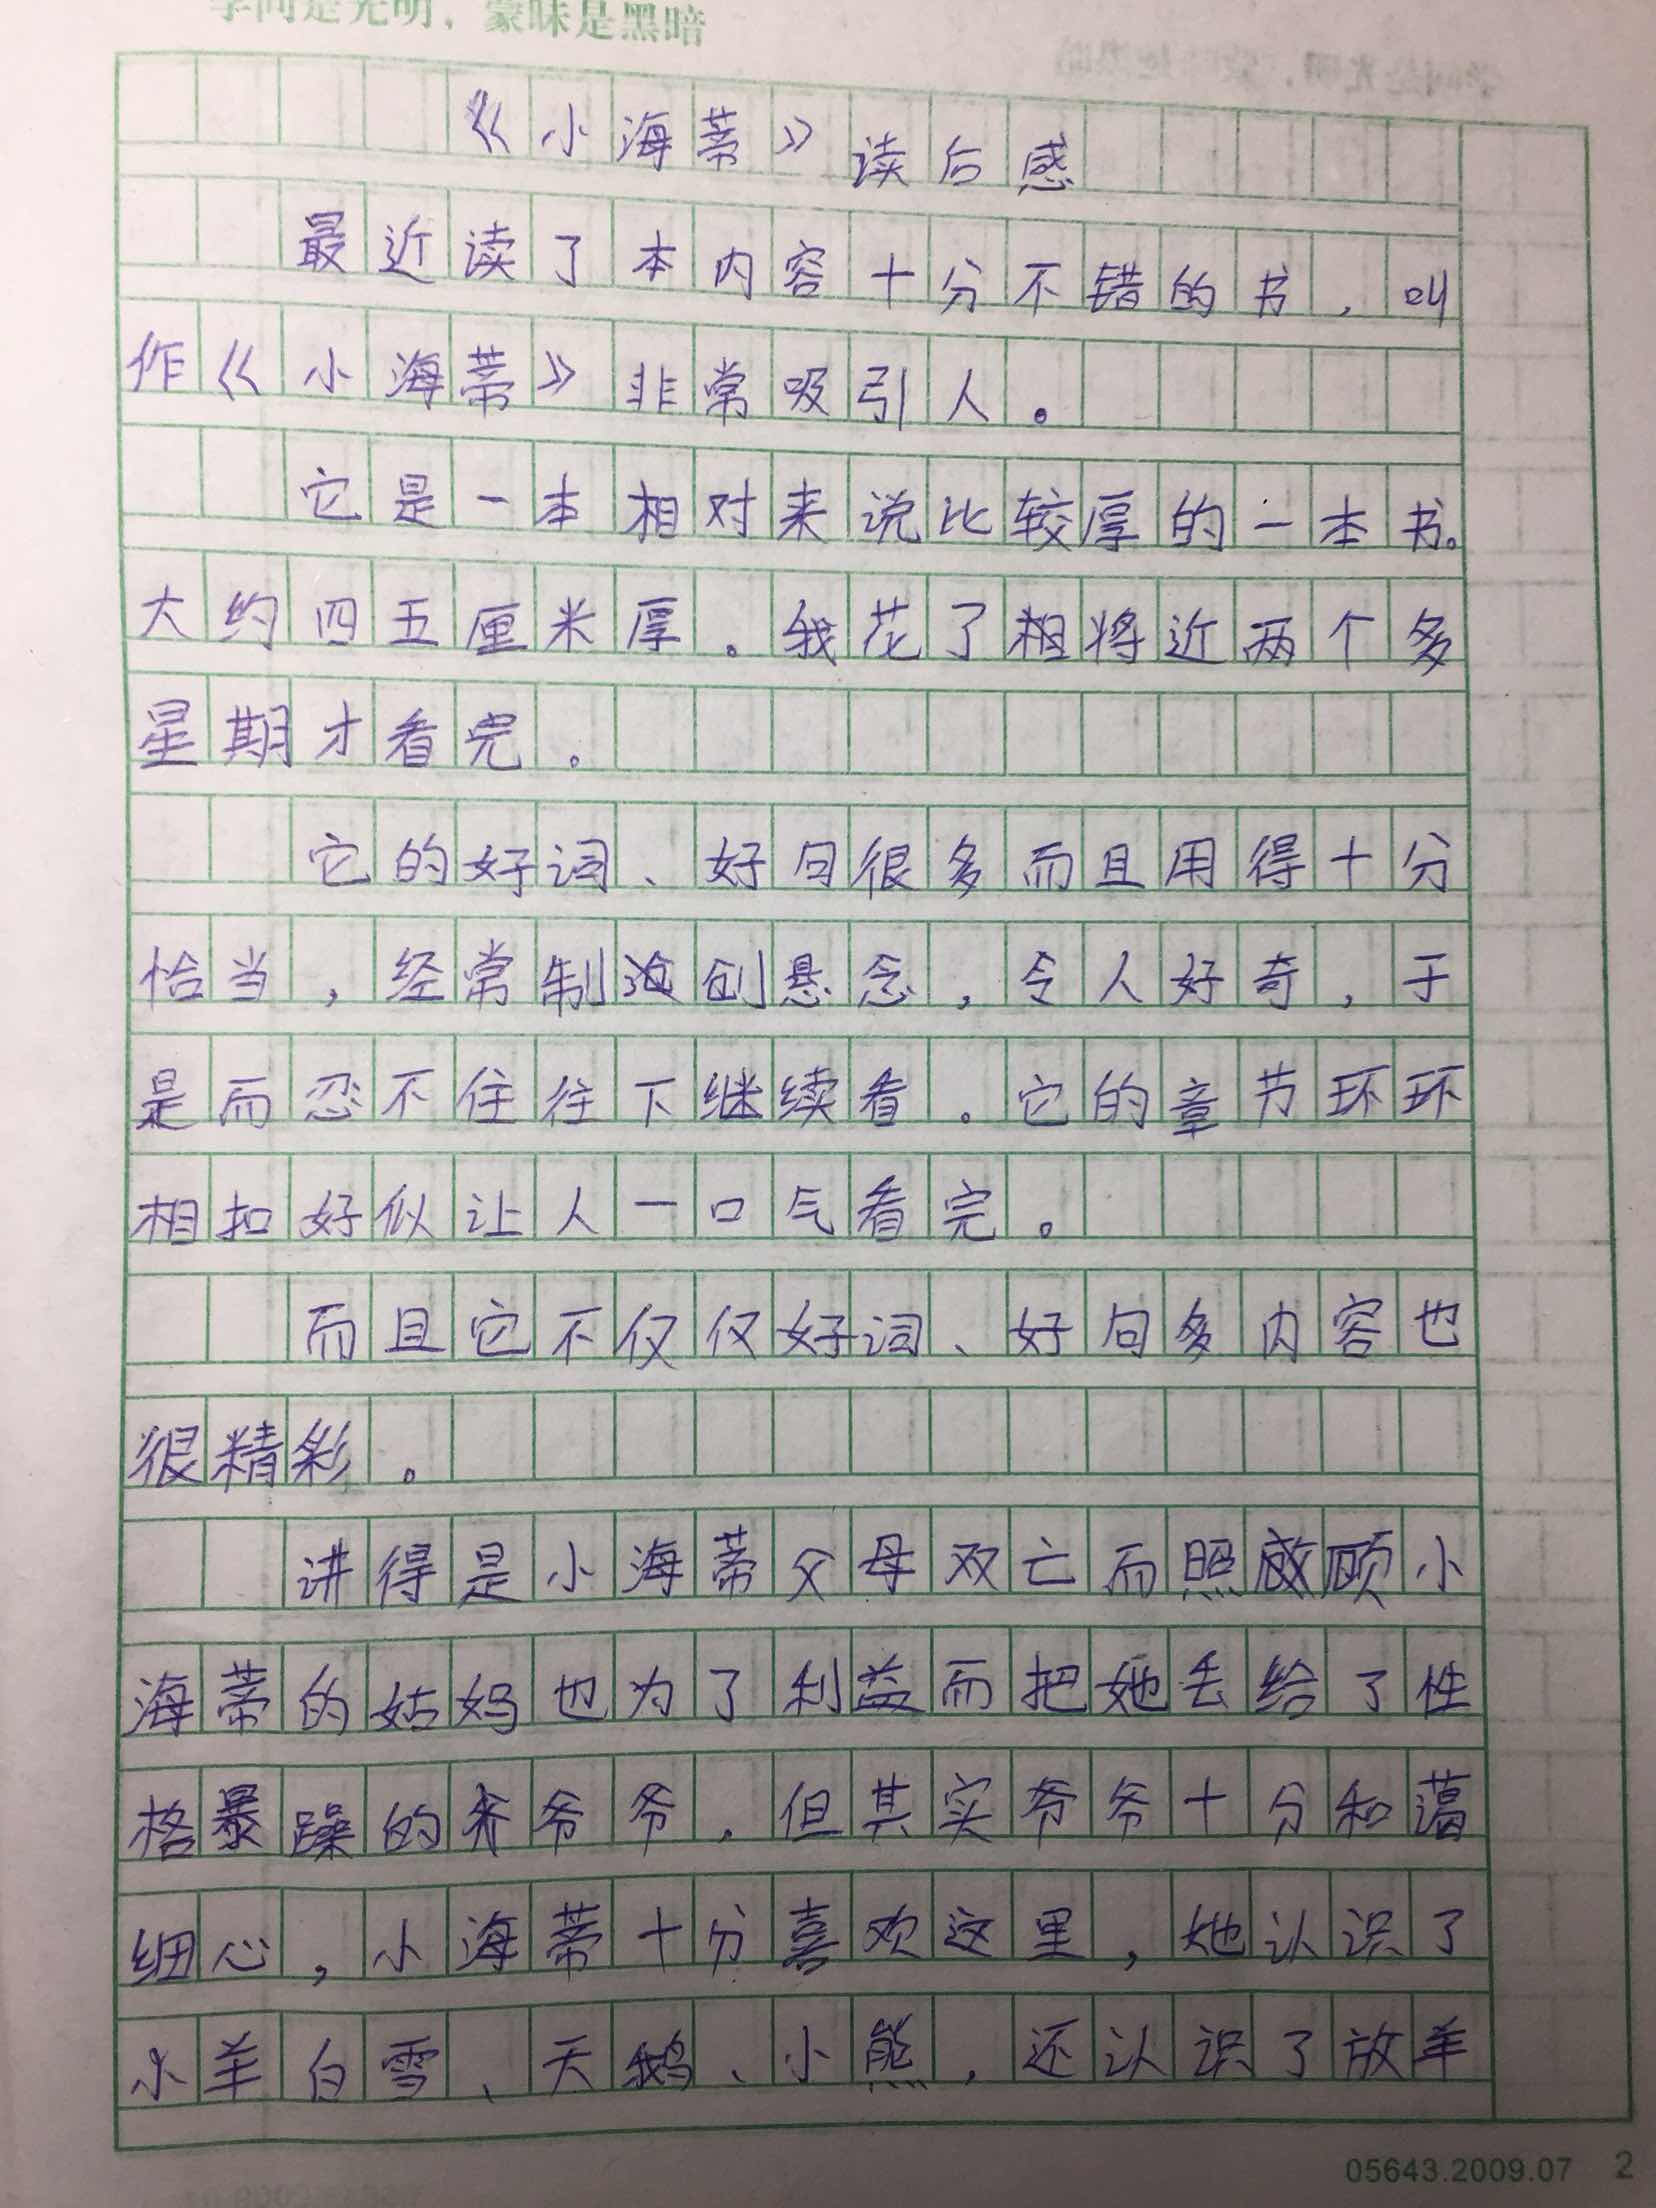 学问是光明，蒙昧是黑暗
《小海蒂》读后感
最近读了本内容十分不错的书，叫
作《小海蒂》非常吸引人。
它是一本相对来说比较厚的一本书。
大约四五厘米厚。我花了相将近两个多
星期才看完。
它的好词、好句很多而且用得十分
恰当，经常制造创悬念，令人好奇，于
是而忍不住往下继续看。它的章节环环
相扣好似让人一口气看完。
而且它不仅仅好词、好句多内容也
很精彩。
讲得是小海蒂父母双亡而照顾小
海蒂的姑妈也为了利益而把她丢给了性
格暴躁的爷爷，但其实爷爷十分和蔼
细心，小海蒂十分喜欢这里，她认识了
小羊白雪、天鹅、小熊，还认识了放羊
05643.2009.07 2